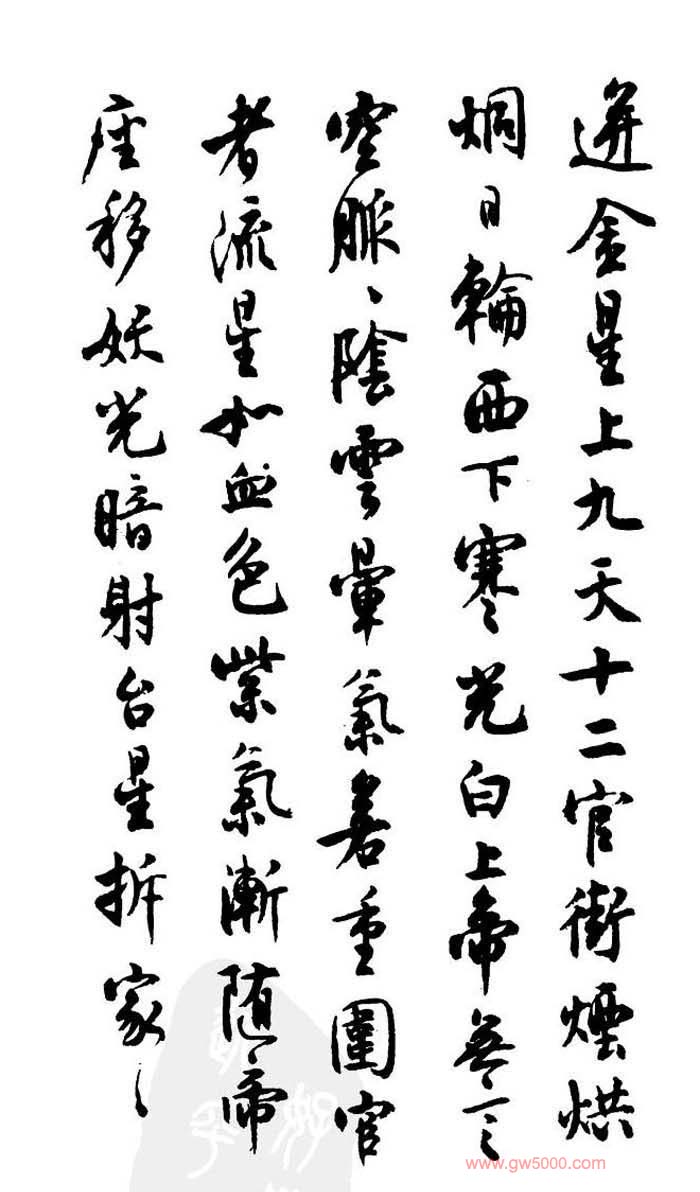 迸金星上九天十二官街煙烘
烔日輪西下寒光白上帝無言
空脈、陰雲暈氣若重圍官
者流星如血色紫氣漸随帝
座移妖光暗射台星拆家、
www.gw5000.com